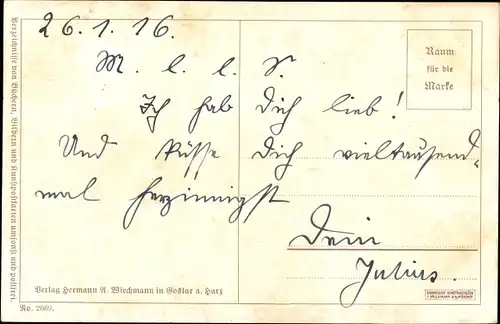 26.1.16.
M. l. l. S.
Ich hab Dich lieb!
Und küsse Dich vieltausend-
mal herzinnigst
Dein
Julius.
Raum
für die
Marke
Verzeichnisse von Büchern, Bildern und Kunstpostkarten umsonst und postfrei.
Verlag Hermann A. Wiechmann in Goslar a. Harz
No. 2069.